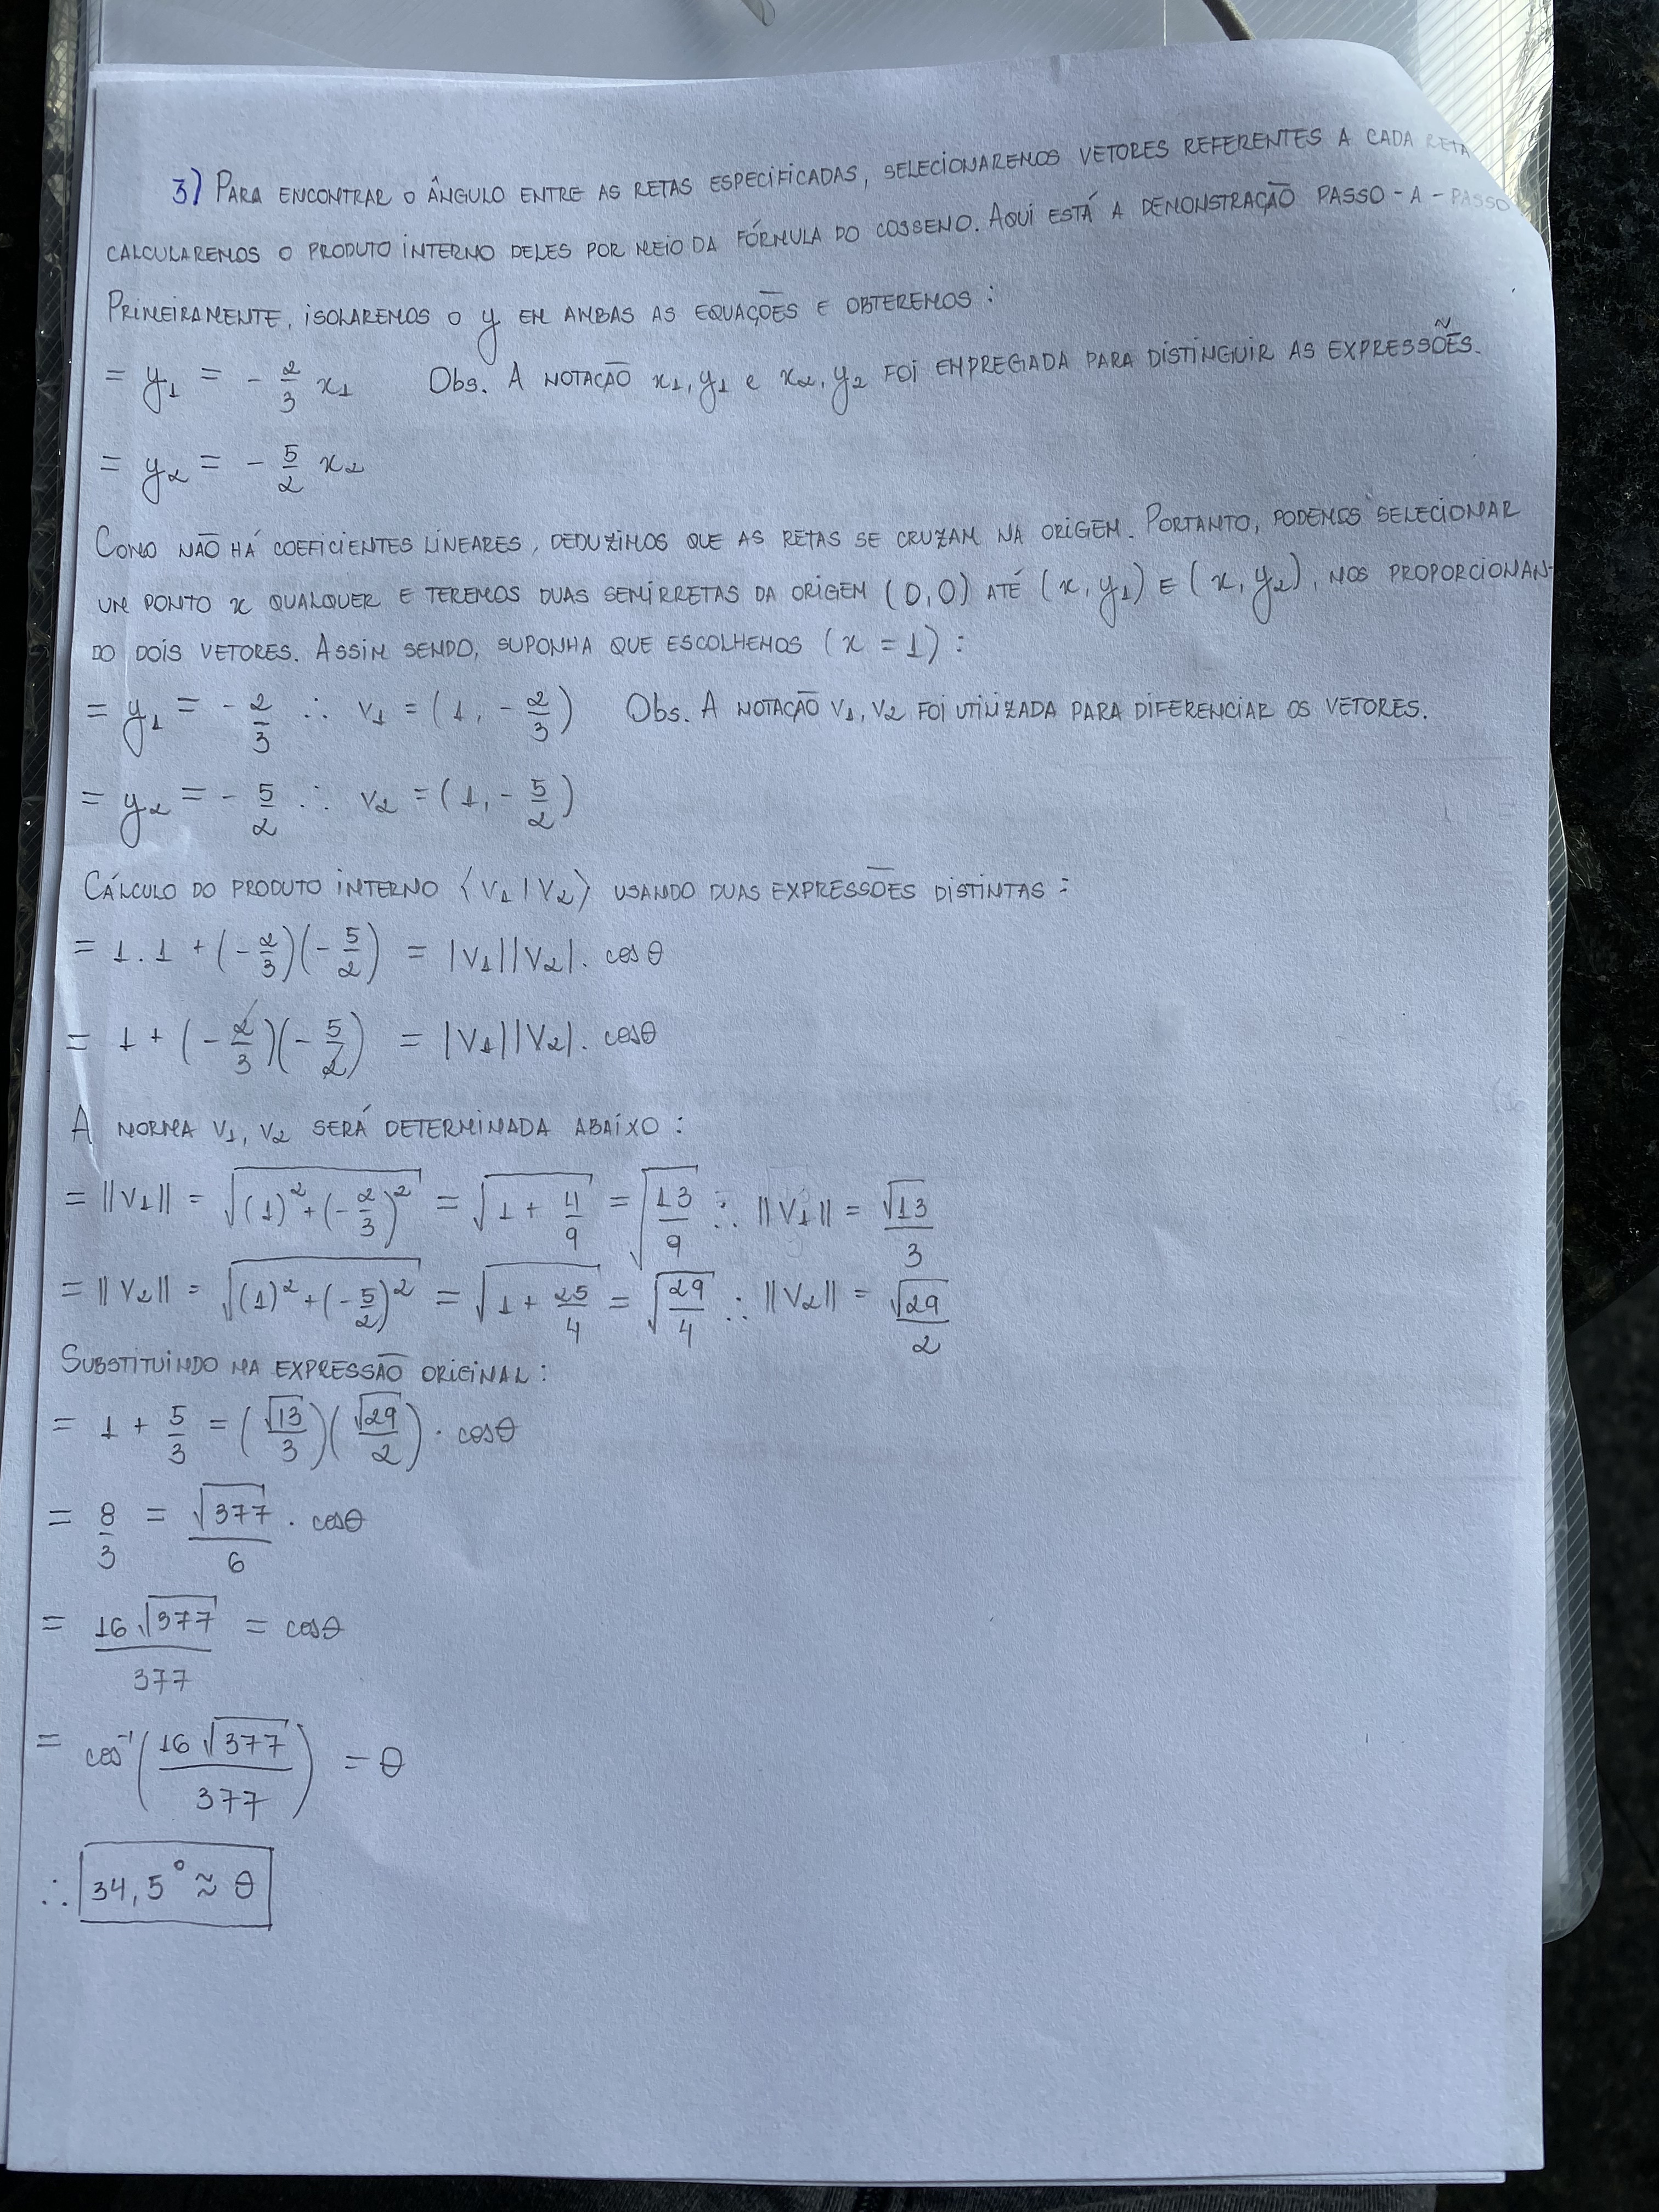 3) PARA ENCONTRAR O ÂNGULO ENTRE AS RETAS ESPECIFICADAS, SELECIONAREMOS VETORES REFERENTES A CADA RETA
CALCULAREMOS O PRODUTO INTERNO DELES POR MEIO DA FÓRMULA DO COSSENO. AQUI ESTÁ A DEMONSTRAÇÃO PASSO-A-PASSO
PRIMEIRAMENTE, ISOLAREMOS O y EM AMBAS AS EQUAÇÕES E OBTEREMOS:
= y₁ = - 2/3 x₁ Obs. A NOTAÇÃO x₁, y₁ e x₂, y₂ FOI EMPREGADA PARA DISTINGUIR AS EXPRESSÕES.
= y₂ = - 5/2 x₂
COMO NÃO HÁ COEFICIENTES LINEARES, DEDUZIMOS QUE AS RETAS SE CRUZAM NA ORIGEM. PORTANTO, PODEMOS SELECIONAR
UM PONTO x QUALQUER E TEREMOS DUAS SEMIRRETAS DA ORIGEM (0,0) ATÉ (x, y₁) E (x, y₂), NOS PROPORCIONAN-
DO DOIS VETORES. ASSIM SENDO, SUPONHA QUE ESCOLHEMOS (x = 1):
= y₁ = - 2/3 ∴ v₁ = (1, - 2/3) Obs. A NOTAÇÃO v₁, v₂ FOI UTILIZADA PARA DIFERENCIAR OS VETORES.
= y₂ = - 5/2 ∴ v₂ = (1, - 5/2)
CÁLCULO DO PRODUTO INTERNO ⟨v₁ | v₂⟩ USANDO DUAS EXPRESSÕES DISTINTAS:
= 1 . 1 + (- 2/3)(- 5/2) = |v₁||v₂| . cos θ
= 1 + (- 2/3)(- 5/2) = |v₁||v₂| . cosθ
A NORMA v₁, v₂ SERÁ DETERMINADA ABAIXO:
= ||v₁|| = √((1)² + (- 2/3)²) = √(1 + 4/9) = √(13/9) ∴ ||v₁|| = √13/3
= ||v₂|| = √((1)² + (- 5/2)²) = √(1 + 25/4) = √(29/4) ∴ ||v₂|| = √29/2
SUBSTITUINDO NA EXPRESSÃO ORIGINAL:
= 1 + 5/3 = (√13/3)(√29/2) . cosθ
= 8/3 = √377/6 . cosθ
= 16√377/377 = cosθ
= cos⁻¹(16√377/377) = θ
∴ 34,5° ≈ θ